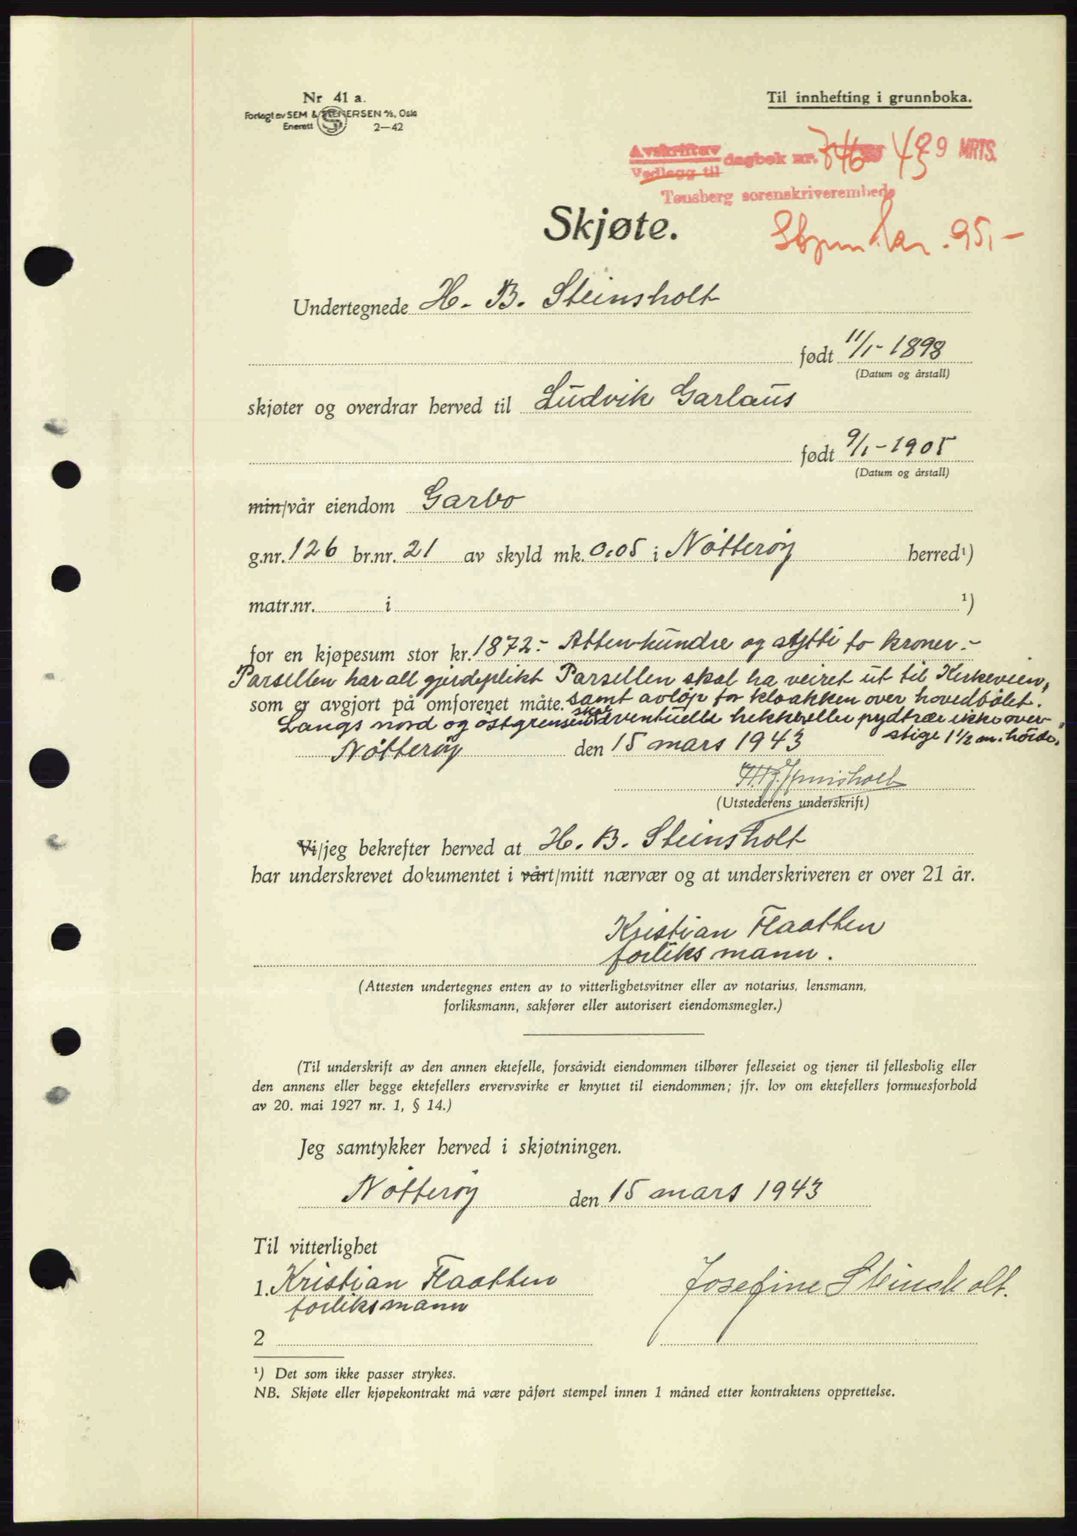 Nr 41 a.
Forlagt av SEM & STENERSEN A/S, Oslo
Enerett 2—42
Til innhefting i grunnboka.
Avskrift av
Vedlegg til
dagbok nr. 746 43 29 MRTS.
Tønsberg sorenskriverembede
95,-
Skjøte.
Undertegnede H. B. Steinsholt
født 11/1-1898
(Datum og årstall)
skjøter og overdrar herved til Ludvik Garlaus
født 9/1-1905
(Datum og årstall)
min/vår eiendom Garbo
g.nr. 126 br.nr. 21 av skyld mk. 0.05 i Nøtterøy herred¹)
matr.nr. i ¹)
for en kjøpesum stor kr. 1872.- Atten hundre og sytti to kroner.-
Parsellen har all gjerdeplikt Parsellen skal ha veiret ut til Kirkeveien,
som er avgjort på omforenet måte. samt avløp for kloakken over hovedbølet.
Langs nord og østgrensen skal eventuelle hekk eller prydtrær ikke over-
stige 1½ m. høide.
Nøtterøy den 15 mars 1943
H.B. Steinsholt
(Utstederens underskrift)
Vi/jeg bekrefter herved at H. B. Steinsholt
har underskrevet dokumentet i vårt/mitt nærvær og at underskriveren er over 21 år.
Kristian Flaatten
forliksmann.
(Attesten undertegnes enten av to vitterlighetsvitner eller av notarius, lensmann,
forliksmann, sakfører eller autorisert eiendomsmegler.)
(Til underskrift av den annen ektefelle, forsåvidt eiendommen tilhører felleseiet og tjener til fellesbolig eller
den annens eller begge ektefellers ervervsvirke er knyttet til eiendommen; jfr. lov om ektefellers formuesforhold
av 20. mai 1927 nr. 1, § 14.)
Jeg samtykker herved i skjøtningen.
Nøtterøy den 15 mars 1943
Til vitterlighet
1. Kristian Flaatten Josefine Steinsholt.
forliksmann
2
¹) Det som ikke passer strykes.
NB. Skjøte eller kjøpekontrakt må være påført stempel innen 1 måned etter kontraktens opprettelse.